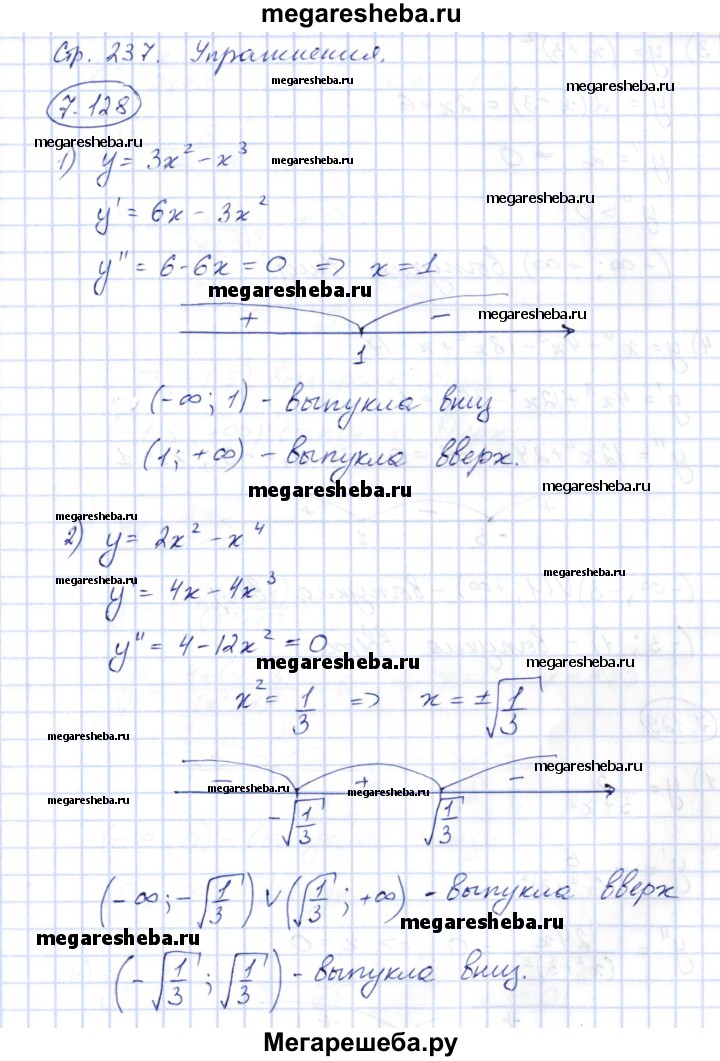 megaresheba.ru
Стр. 237. Упражнения.
megaresheba.ru
7.128
megaresheba.ru
1) y = 3x² - x³
megaresheba.ru
megaresheba.ru
y' = 6x - 3x²
y'' = 6 - 6x = 0 => x = 1
megaresheba.ru
megaresheba.ru
+ -
1
(-∞; 1) - выпукла вниз
(1; +∞) - выпукла вверх.
megaresheba.ru
megaresheba.ru
megaresheba.ru
2) y = 2x² - x⁴
megaresheba.ru
megaresheba.ru
y' = 4x - 4x³
y'' = 4 - 12x² = 0
megaresheba.ru
megaresheba.ru
x² = 1/3 => x = ±√1/3
megaresheba.ru
megaresheba.ru
- + -
megaresheba.ru
megaresheba.ru
megaresheba.ru
-√1/3 √1/3
(-∞; -√1/3) ∨ (√1/3; +∞) - выпукла вверх
megaresheba.ru
megaresheba.ru
megaresheba.ru
(-√1/3; √1/3) - выпукла вниз.
Мегарешеба.ру